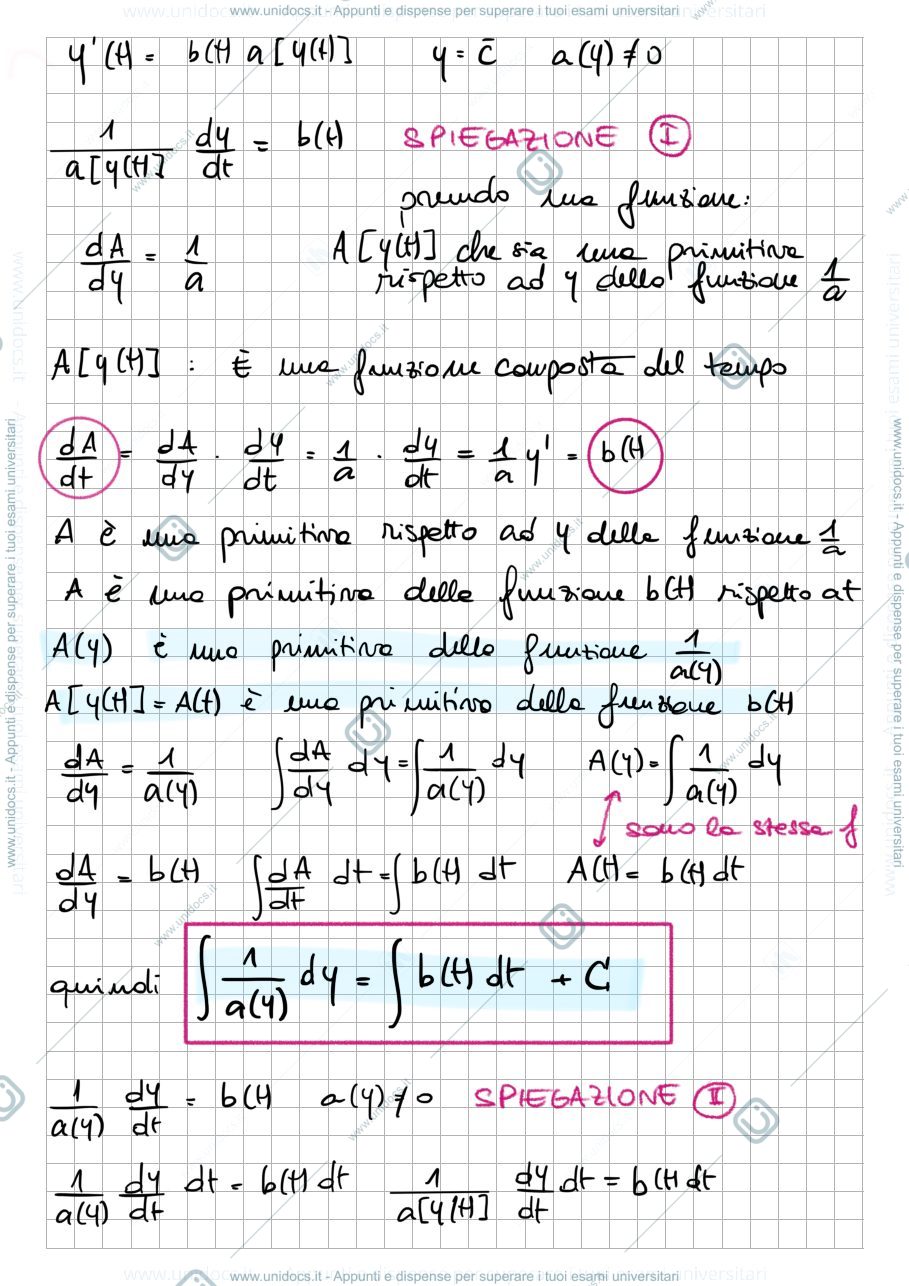 www.unidocs.it - Appunti e dispense per superare i tuoi esami universitari
y'(t) = b(t) a[y(t)] y = c̄ a(y) ≠ 0
1/a[y(t)] dy/dt = b(t) SPIEGAZIONE I
prendo una funzione:
dA/dy = 1/a A[y(t)] che sia una primitiva
rispetto ad y della funzione 1/a
A[y(t)] : È una funzione composta del tempo
dA/dt = dA/dy · dy/dt = 1/a · dy/dt = 1/a y' = b(t)
A è una primitiva rispetto ad y della funzione 1/a
A è una primitiva della funzione b(t) rispetto a t
A(y) è una primitiva della funzione 1/a(y)
A[y(t)] = A(t) è una primitiva della funzione b(t)
dA/dy = 1/a(y) ∫ dA/dy dy = ∫ 1/a(y) dy A(y) = ∫ 1/a(y) dy
sono la stessa f
dA/dy = b(t) ∫ dA/dt dt = ∫ b(t) dt A(t) = b(t) dt
quindi ∫ 1/a(y) dy = ∫ b(t) dt + C
1/a(y) dy/dt = b(t) a(y) ≠ 0 SPIEGAZIONE II
1/a(y) dy/dt dt = b(t) dt 1/a[y(t)] dy/dt dt = b(t) dt
www.unidocs.it - Appunti e dispense per superare i tuoi esami universitari